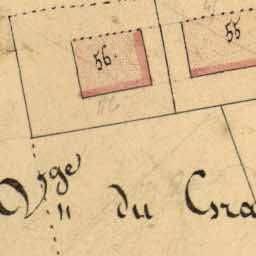 56.
55
Vge du Gra